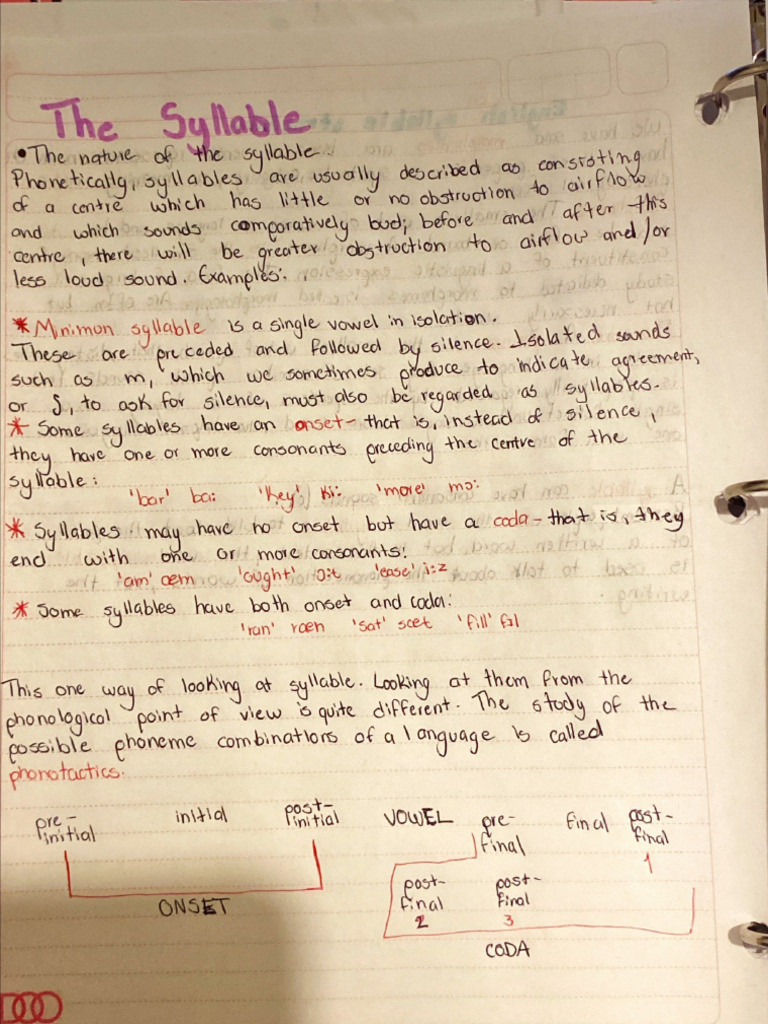 The Syllable
• The nature of the syllable.
Phonetically, syllables are usually described as consisting
of a centre which has little or no obstruction to airflow
and which sounds comporatively loud; before and after this
centre, there will be greater obstruction to airflow and/or
less loud sound. Examples:
* Minimun syllable is a single vowel in isolation.
These are preceded and followed by silence. Isolated sounds
such as m, which we sometimes produce to indicate agreement,
or ʃ, to ask for silence, must also be regarded as syllables.
* Some syllables have an onset- that is, instead of silence,
they have one or more consonants preceding the centre of the
syllable:
'bar' ba: 'key' ki: 'more' mɔ:
* Syllables may have no onset but have a coda- that is, they
end with one or more consonants:
'am' æm 'ought' ɔ:t 'ease' i:z
* Some syllables have both onset and coda:
'ran' ræn 'sat' sæt 'fill' fɪl
This one way of looking at syllable. Looking at them from the
phonological point of view is quite different. The study of the
possible phoneme combinations of a language is called
phonotactics.
pre- initial post- VOWEL pre- final post-
initial initial final final
1
post- post-
final final
2 3
ONSET
CODA